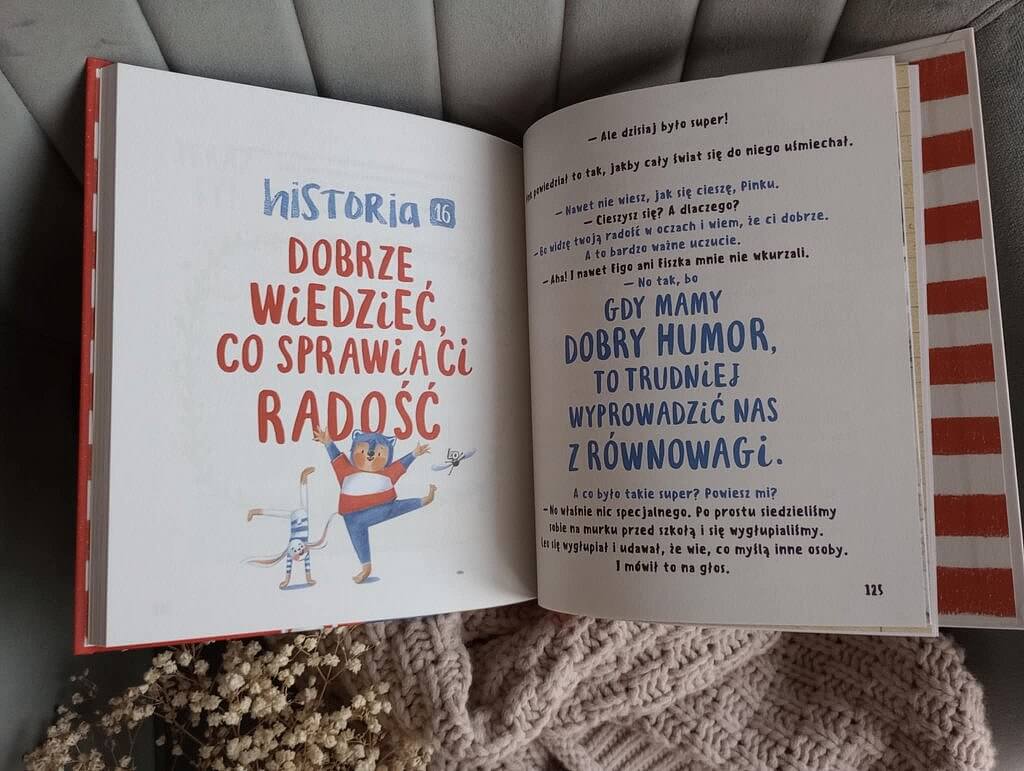 historia 16
DOBRZE
WIEDZIEĆ,
CO SPRAWIA CI
RADOŚĆ
– Ale dzisiaj było super!
powiedział to tak, jakby cały świat się do niego uśmiechał.
– Nawet nie wiesz, jak się cieszę, Pinku.
– Cieszysz się? A dlaczego?
– Bo widzę twoją radość w oczach i wiem, że ci dobrze.
A to bardzo ważne uczucie.
– Aha! I nawet Figo ani Fiszka mnie nie wkurzali.
– No tak, bo
GDY MAMY
DOBRY HUMOR,
TO TRUDNIEJ
WYPROWADZIĆ NAS
Z RÓWNOWAGI.
A co było takie super? Powiesz mi?
– No właśnie nic specjalnego. Po prostu siedzieliśmy
sobie na murku przed szkołą i się wygłupialiśmy.
Leo się wygłupiał i udawał, że wie, co myślą inne osoby.
I mówił to na głos.
125